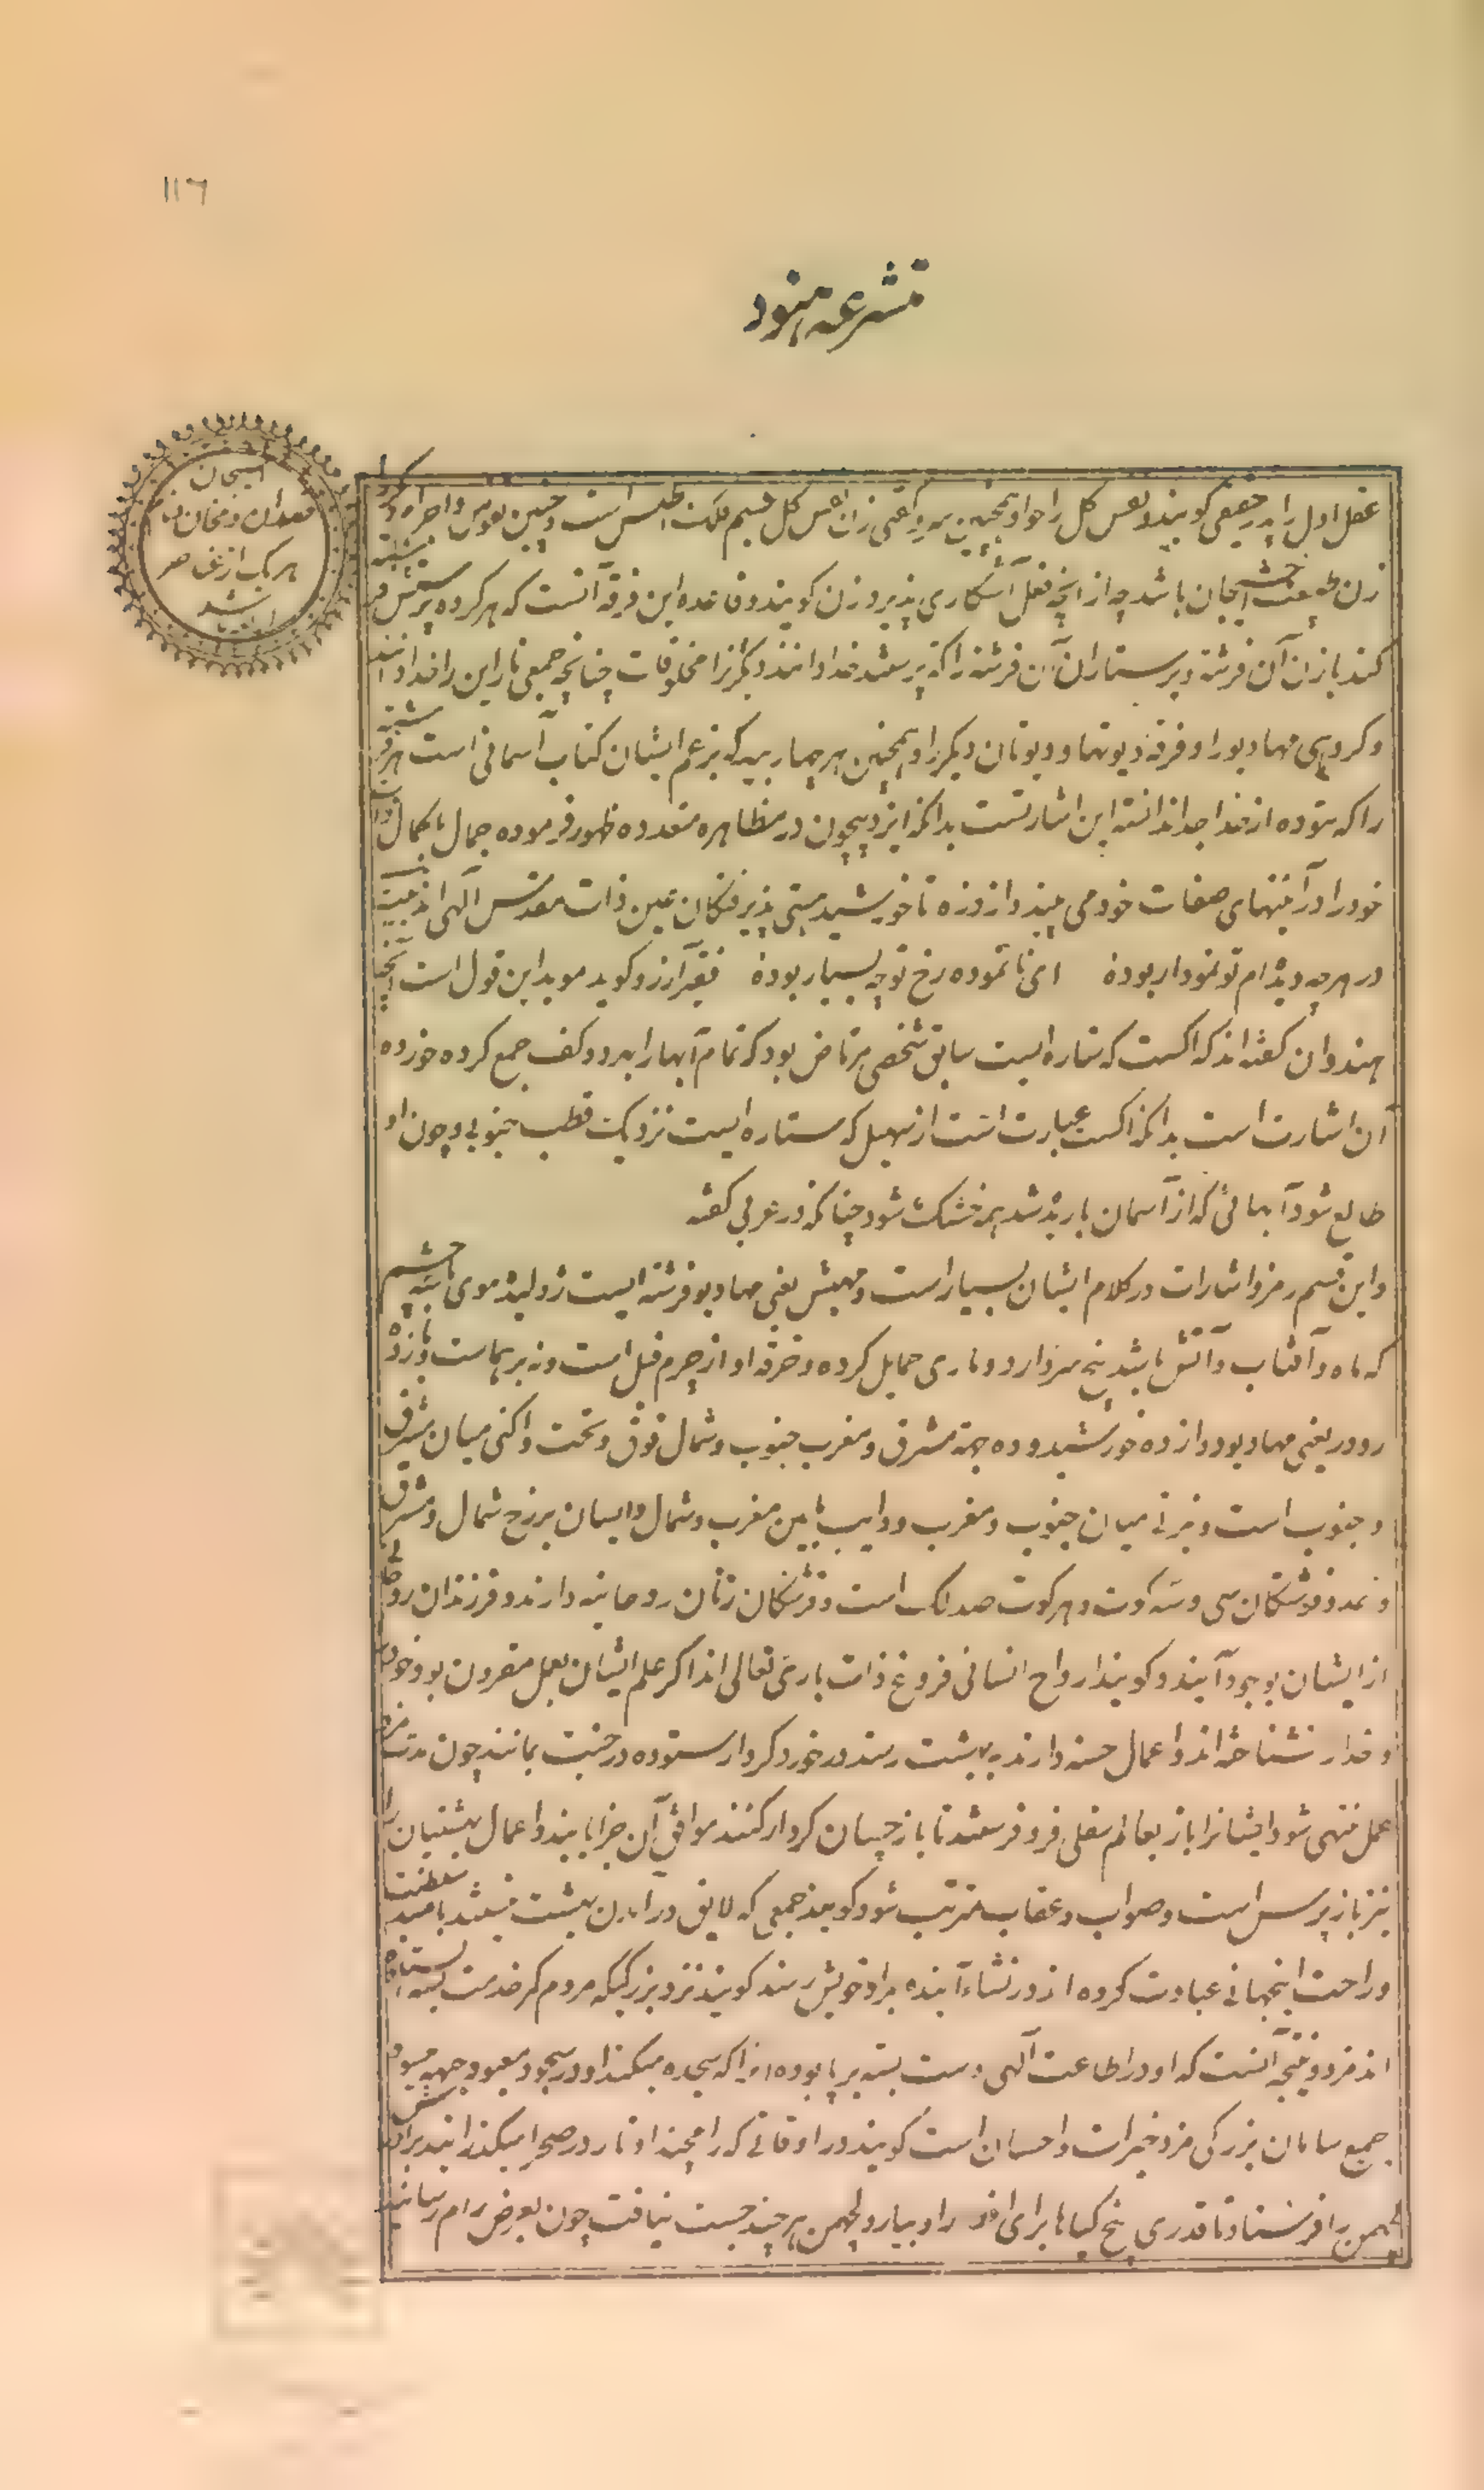 ١١٦
متشرعه هنود
اسیجان
معدن و دخان و
هر یک از عناصر
باشد
عقل اول را پدر حقیقی گویند و نفس کل را حوا و همچنین زن نفس کل جسم فلک اطلس است و همچنین نفوس و اجرام دیگر
زن طبیعت اسیجان باشد چه از آنچه فعل آشکاری پذیرد زن گویند و قاعده این فرقه آنست که هر گروه پرستش فرشته
کند با زن آن فرشته و پرستاران آن فرشته را که پرستند خدا دانند و دیگر را مخلوقات چنانچه جمعی ناراین را خدا دانند
و گروهی مهادیو را و فرقه دیوتها و دیوتان دیگر را و همچنین هر چهار بید که بزعم ایشان کتاب آسمانی است هر فرشته
را که ستوده از خدا جدا ندانسته این اشارتست بدانکه ایزد بیچون در مظاهره متعدده ظهور فرموده جمال با کمال
خود را در آئینهای صفات خود می بیند و از ذره تا خورشید هستی پذیرفتگان عین ذات مقدس الهی اند بیت
در هر چه دیده ام تو نمودار بوده ای نا نموده رخ تو چه بسیار بوده فقیر آرزو گوید موید این قول است آنچه
هندوان گفته اند که اگست که ستاره ایست سابق شخصی مرتاض بود که تمام آبها را بدو کف جمع کرده خورده
آن اشارت است بدانکه اگست عبارت است از سهیل که ستاره ایست نزدیک قطب جنوبی و چون او
طالع شود آبهائی که از آسمان باریده شد همه خشک شود چنانکه در عربی گفته
و این قسم رمز و اشارات در کلام ایشان بسیار است و مهیش یعنی مهادیو فرشته ایست ژولیده موی با سه چشم
که ماه و آفتاب و آتش باشد پنج سر دارد و ماری حمایل کرده و خرقه او از چرم فیل است و نه برهماست و یازده
رودر یعنی مهادیو و دوازده خورشید و ده جهة مشرق و مغرب جنوب و شمال فوق و تحت و اکنی میان مشرق
و جنوب است و نیرتی میان جنوب و مغرب و وایب مابین مغرب و شمال و ایسان برزخ شمال و مشرق
و عدد فرشتگان سی و سه کوت و هر کوت صد لک است و فرشتگان زنان روحانیه دارند و فرزندان روحانی
از ایشان بوجود آیند و گویند ارواح انسانی فروغ ذات باری تعالی اند اگر علم ایشان بعمل مقرون بود و خود
و خدا را نشناخته اند و اعمال حسنه دارند به بهشت رسند در خورد کردار ستوده در جنت بمانند چون مدت مزد
عمل منتهی شود ایشانرا باز بعالم سفلی فرو فرستند تا باز چسان کردار کنند موافق آن جزا یابند و اعمال بهشتیان را
نیز باز پرس است و صواب و عقاب مترتب شود گویند جمعی که لایق در آمدن بهشت نیستند بامید سلطنت
و راحت اینجهانی عبادت کرده اند در نشاء آینده بمراد خویش رسند گویند نزد بزرگیکه مردم کمر خدمت بسته استاده
اند مزد و نتیجه آنست که او در اطاعت الهی دست بسته بر پا بوده و آنرا که سجده میکنند او در سجود معبود جبهه میسود
جمیع سامان بزرگی مزد خیرات و احسان است گویند در اوقاتی که رامچند اوتار در صحرا میگذرانید برادرش
لچهمن را فرستاد تا قدری بیخ گیاها برای افطار او بیارد لچهمن هر چند جست نیافت چون بعرض رام رسانید